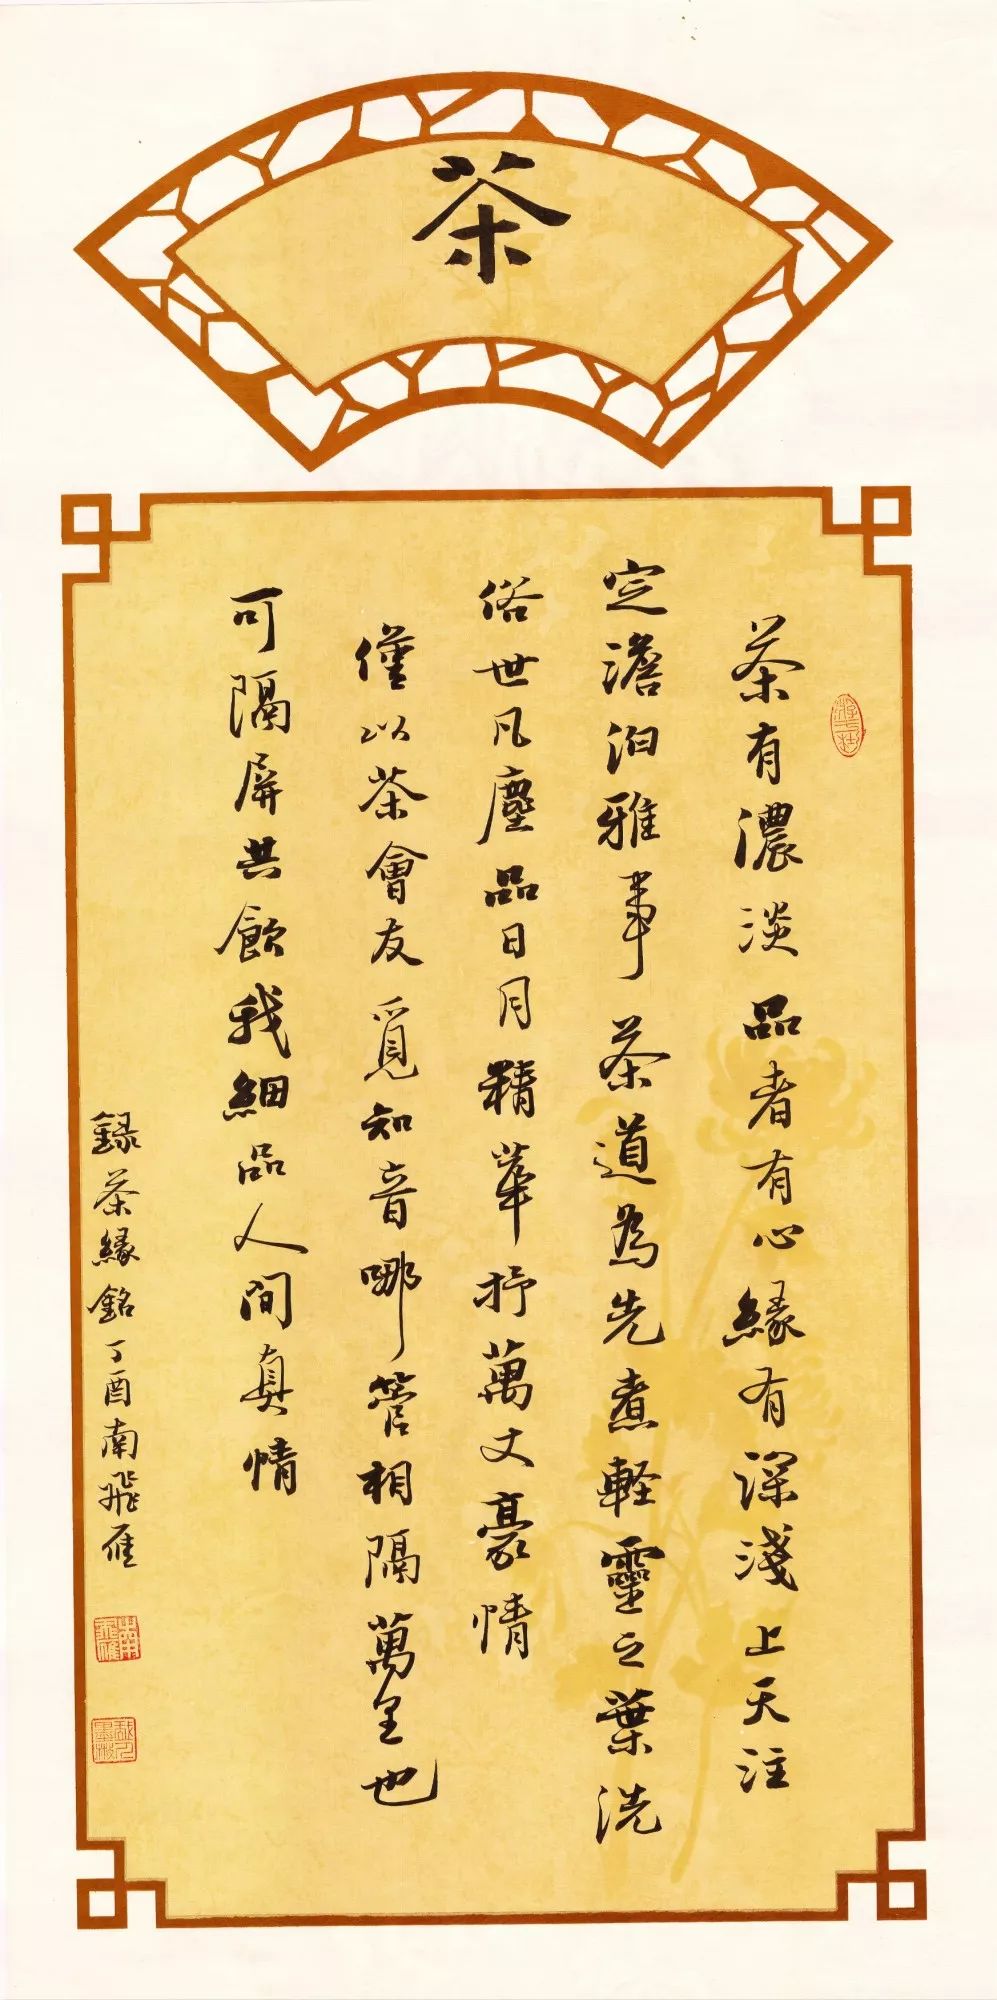 茶
茶有濃淡品者有心緣有深淺上天注
定澹泊雅事茶道為先煮輕靈之葉洗
俗世凡塵品日月精華抒萬丈豪情
僅以茶會友覓知音哪管相隔萬里也
可隔屏共飲我細品人間真情
錄茶緣銘丁酉南飛雁